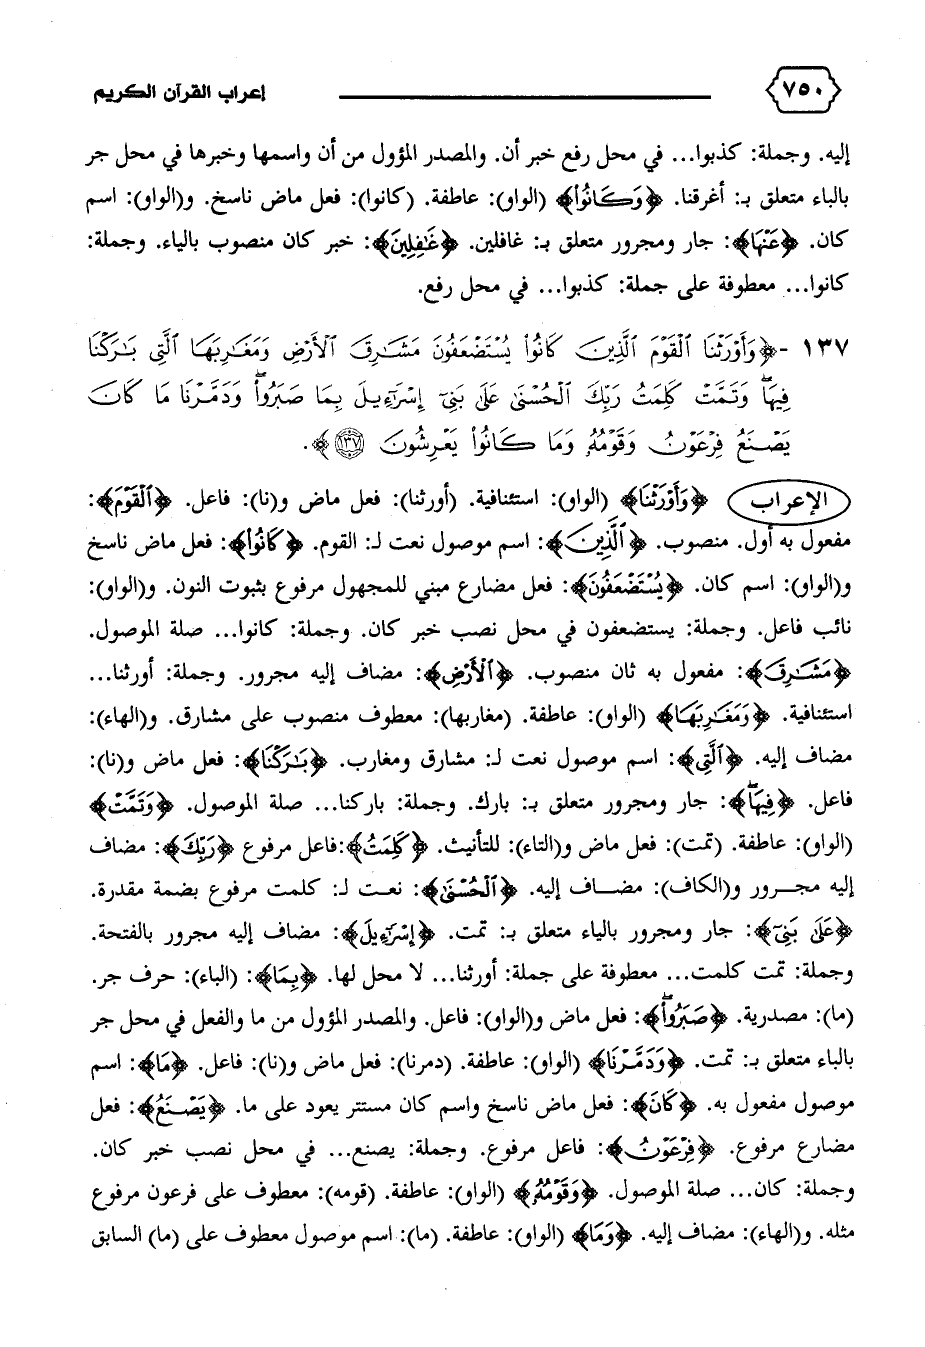 ٧٥٠ إعراب القرآن الكريم
إليه. وجملة: كذبوا... في محل رفع خبر أن. والمصدر المؤول من أن واسمها وخبرها في محل جر
بالباء متعلق بـ: أغرقنا. ﴿وَكَانُوا۟﴾ (الواو): عاطفة. (كانوا): فعل ماض ناسخ. و(الواو): اسم
كان. ﴿عَنْهَا﴾: جار ومجرور متعلق بـ: غافلين. ﴿غَٰفِلِينَ﴾: خبر كان منصوب بالياء. وجملة:
كانوا... معطوفة على جملة: كذبوا... في محل رفع.
١٣٧ -﴿وَأَوْرَثْنَا ٱلْقَوْمَ ٱلَّذِينَ كَانُوا۟ يُسْتَضْعَفُونَ مَشَٰرِقَ ٱلْأَرْضِ وَمَغَٰرِبَهَا ٱلَّتِى بَٰرَكْنَا
فِيهَا ۖ وَتَمَّتْ كَلِمَتُ رَبِّكَ ٱلْحُسْنَىٰ عَلَىٰ بَنِىٓ إِسْرَٰٓءِيلَ بِمَا صَبَرُوا۟ ۖ وَدَمَّرْنَا مَا كَانَ
يَصْنَعُ فِرْعَوْنُ وَقَوْمُهُۥ وَمَا كَانُوا۟ يَعْرِشُونَ ١٣٧﴾.
الإعراب ﴿وَأَوْرَثْنَا﴾ (الواو): استئنافية. (أورثنا): فعل ماض و(نا): فاعل. ﴿ٱلْقَوْمَ﴾:
مفعول به أول. منصوب. ﴿ٱلَّذِينَ﴾: اسم موصول نعت لـ: القوم. ﴿كَانُوا۟﴾: فعل ماض ناسخ
و(الواو): اسم كان. ﴿يُسْتَضْعَفُونَ﴾: فعل مضارع مبني للمجهول مرفوع بثبوت النون. و(الواو):
نائب فاعل. وجملة: يستضعفون في محل نصب خبر كان. وجملة: كانوا... صلة الموصول.
﴿مَشَٰرِقَ﴾: مفعول به ثان منصوب. ﴿ٱلْأَرْضِ﴾: مضاف إليه مجرور. وجملة: أورثنا...
استئنافية. ﴿وَمَغَٰرِبَهَا﴾ (الواو): عاطفة. (مغاربها): معطوف منصوب على مشارق. و(الهاء):
مضاف إليه. ﴿ٱلَّتِى﴾: اسم موصول نعت لـ: مشارق ومغارب. ﴿بَٰرَكْنَا﴾: فعل ماض و(نا):
فاعل. ﴿فِيهَا ۖ﴾: جار ومجرور متعلق بـ: بارك. وجملة: باركنا... صلة الموصول. ﴿وَتَمَّتْ﴾
(الواو): عاطفة. (تمت): فعل ماض و(التاء): للتأنيث. ﴿كَلِمَتُ﴾:فاعل مرفوع ﴿رَبِّكَ﴾: مضاف
إليه مجرور و(الكاف): مضاف إليه. ﴿ٱلْحُسْنَىٰ﴾: نعت لـ: كلمت مرفوع بضمة مقدرة.
﴿عَلَىٰ بَنِىٓ﴾: جار ومجرور بالياء متعلق بـ: تمت. ﴿إِسْرَٰٓءِيلَ﴾: مضاف إليه مجرور بالفتحة.
وجملة: تمت كلمت... معطوفة على جملة: أورثنا... لا محل لها. ﴿بِمَا﴾: (الباء): حرف جر.
(ما): مصدرية. ﴿صَبَرُوا۟ ۖ﴾: فعل ماض و(الواو): فاعل. والمصدر المؤول من ما والفعل في محل جر
بالباء متعلق بـ: تمت. ﴿وَدَمَّرْنَا﴾ (الواو): عاطفة. (دمرنا): فعل ماض و(نا): فاعل. ﴿مَا﴾: اسم
موصول مفعول به. ﴿كَانَ﴾: فعل ماض ناسخ واسم كان مستتر يعود على ما. ﴿يَصْنَعُ﴾: فعل
مضارع مرفوع. ﴿فِرْعَوْنُ﴾: فاعل مرفوع. وجملة: يصنع... في محل نصب خبر كان.
وجملة: كان... صلة الموصول. ﴿وَقَوْمُهُۥ﴾ (الواو): عاطفة. (قومه): معطوف على فرعون مرفوع
مثله. و(الهاء): مضاف إليه. ﴿وَمَا﴾ (الواو): عاطفة. (ما): اسم موصول معطوف على (ما) السابق